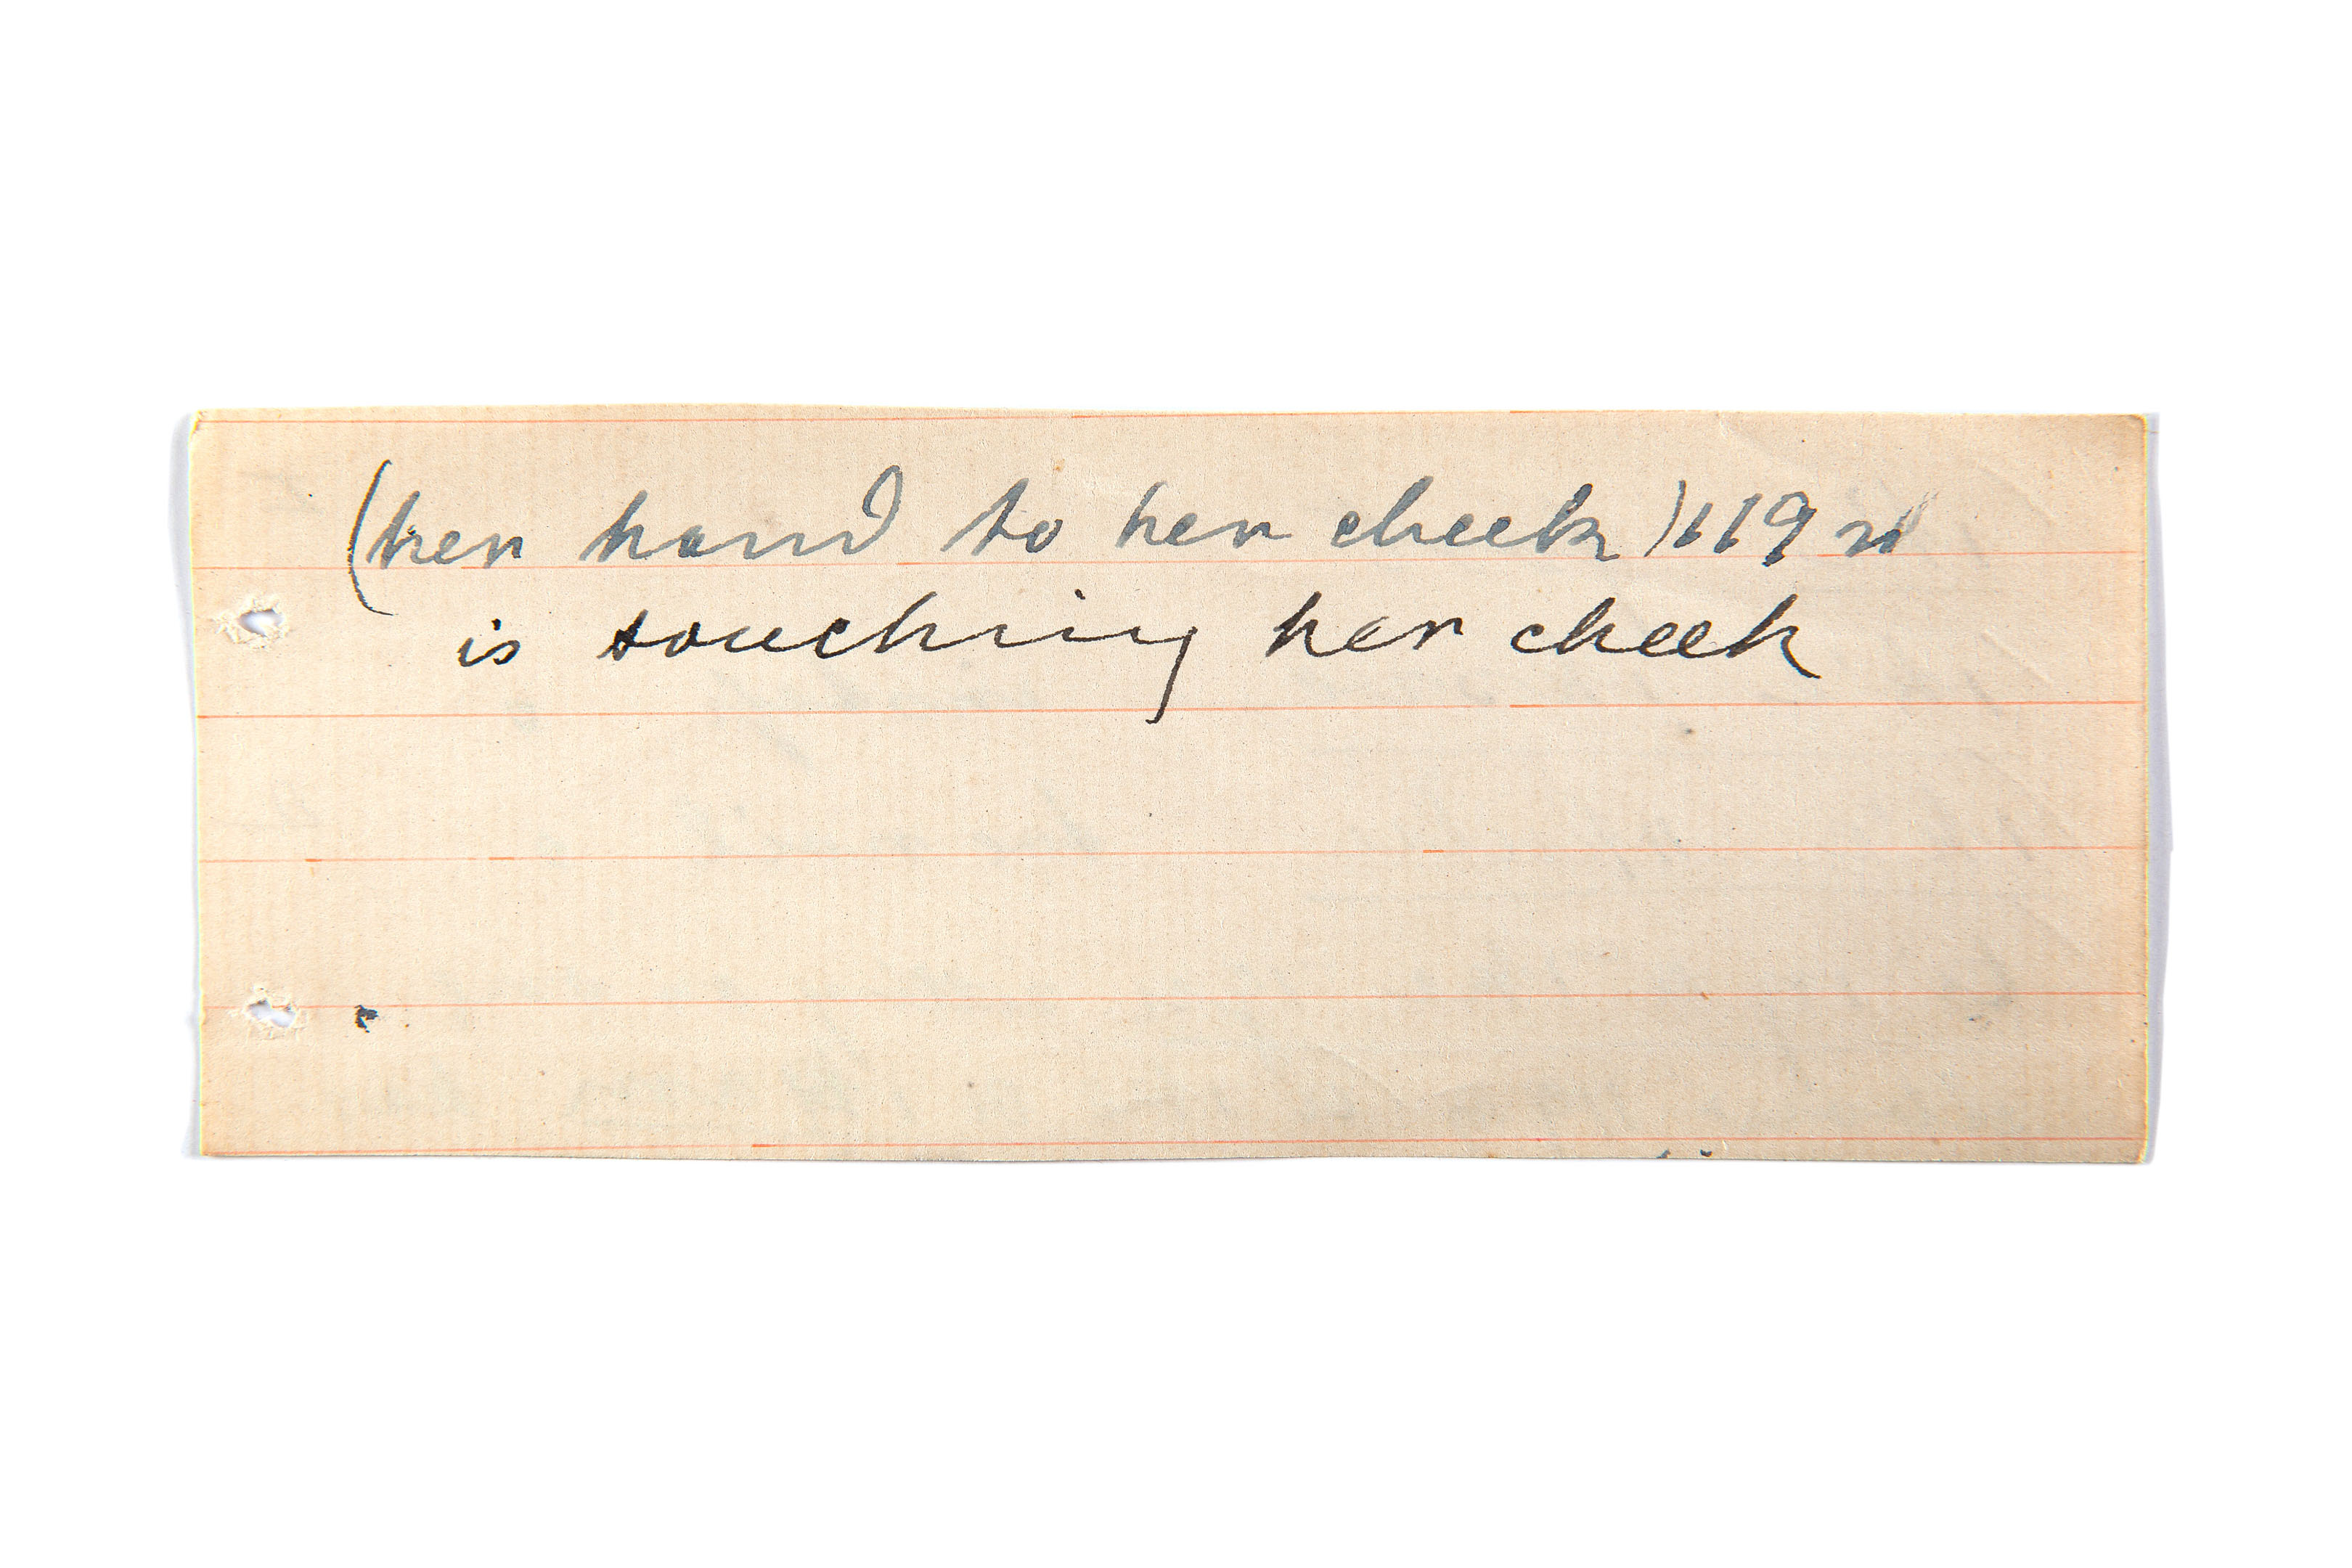 (her hand to her cheek) 119
is touching her cheek